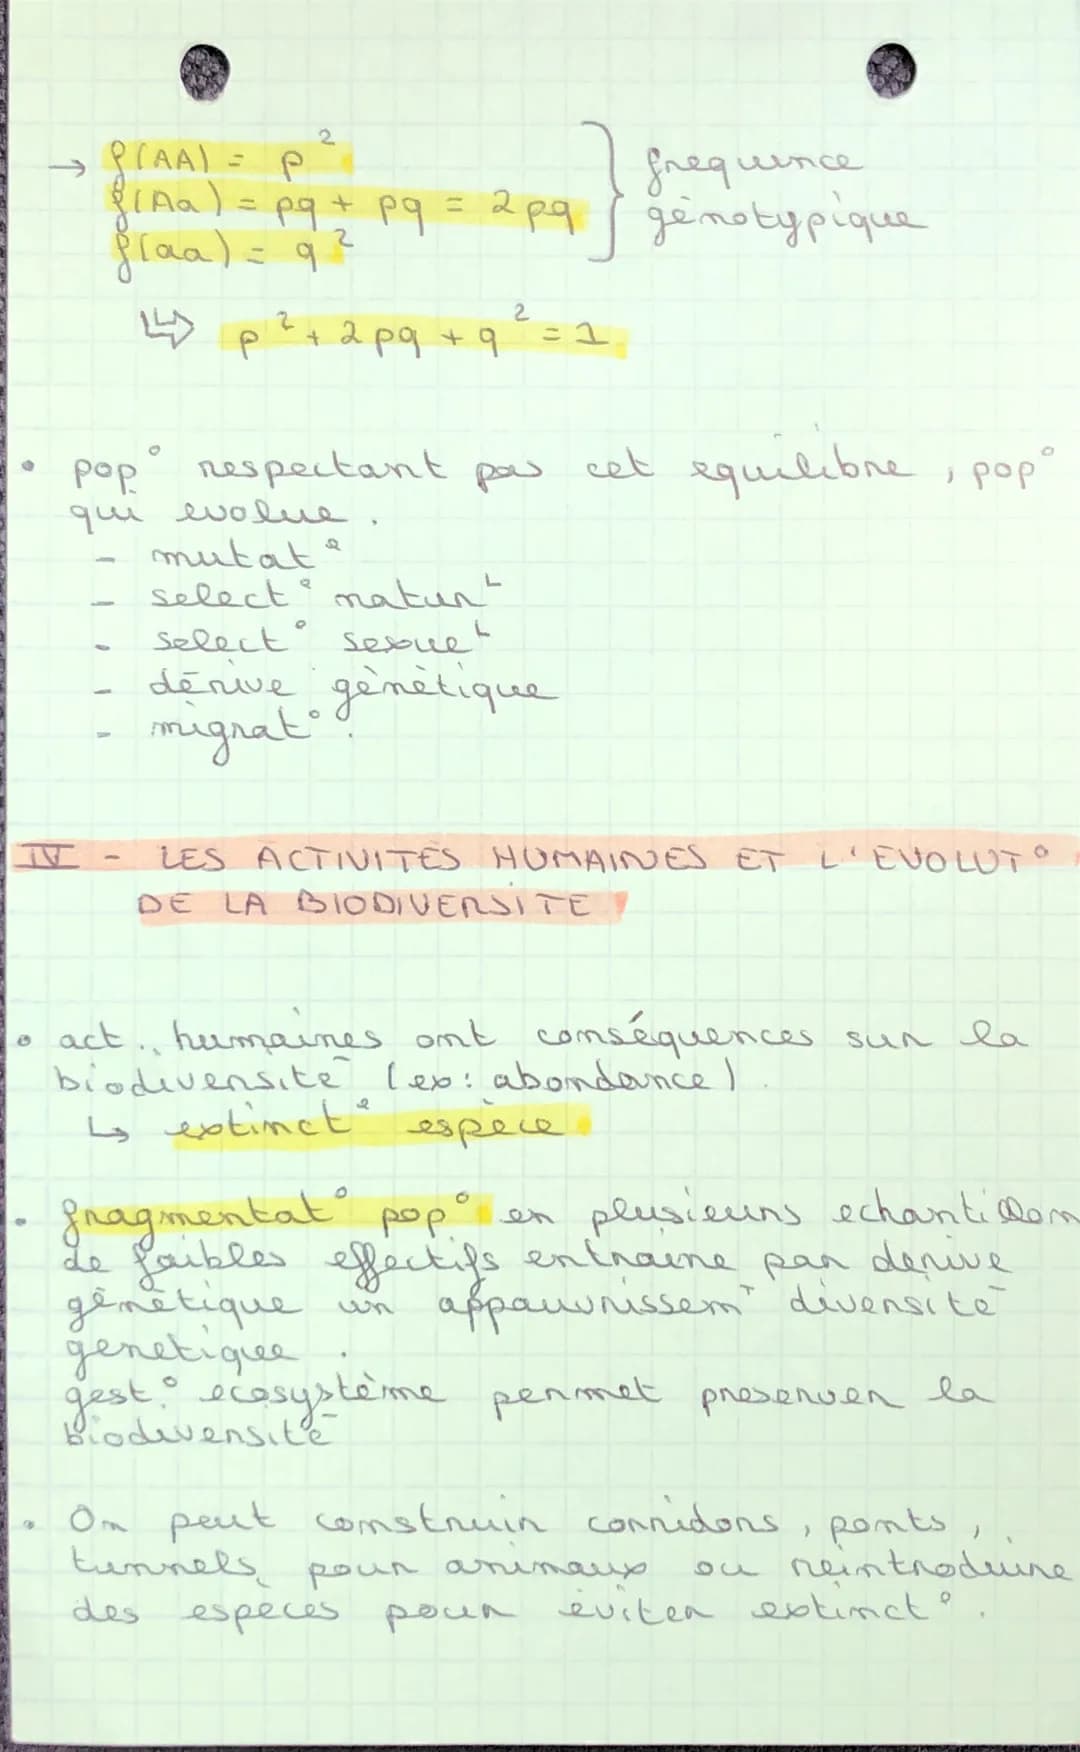 → f(AA) = p²
f(Aa) = pq + pq = 2pq } frequence génotypique
f(aa) = q²
↳ p² + 2pq + q² = 1
• pop° respectant pas cet equilibre, pop°
qui evolue.
- mutat°
- select° natur^L
- select° sexue^L
- dérive génétique
- migrat°.
IV - LES ACTIVITÉS HUMAINES ET L'EVOLUT°
DE LA BIODIVERSITE
• act.. humaines ont conséquences sur la
biodiversité (ex: abondance).
↳ extinct° espèce
• fragmentat° pop° en plusieurs echantillom
de faibles effectifs entraine par derive
génétique un appauvrissem^T diversité
genetique.
gest.° ecosystème permet preserver la
biodiversité
• On peut construir corridors, ponts,
tunnels, pour animaux ou réintroduire
des espèces pour éviter extinct°.